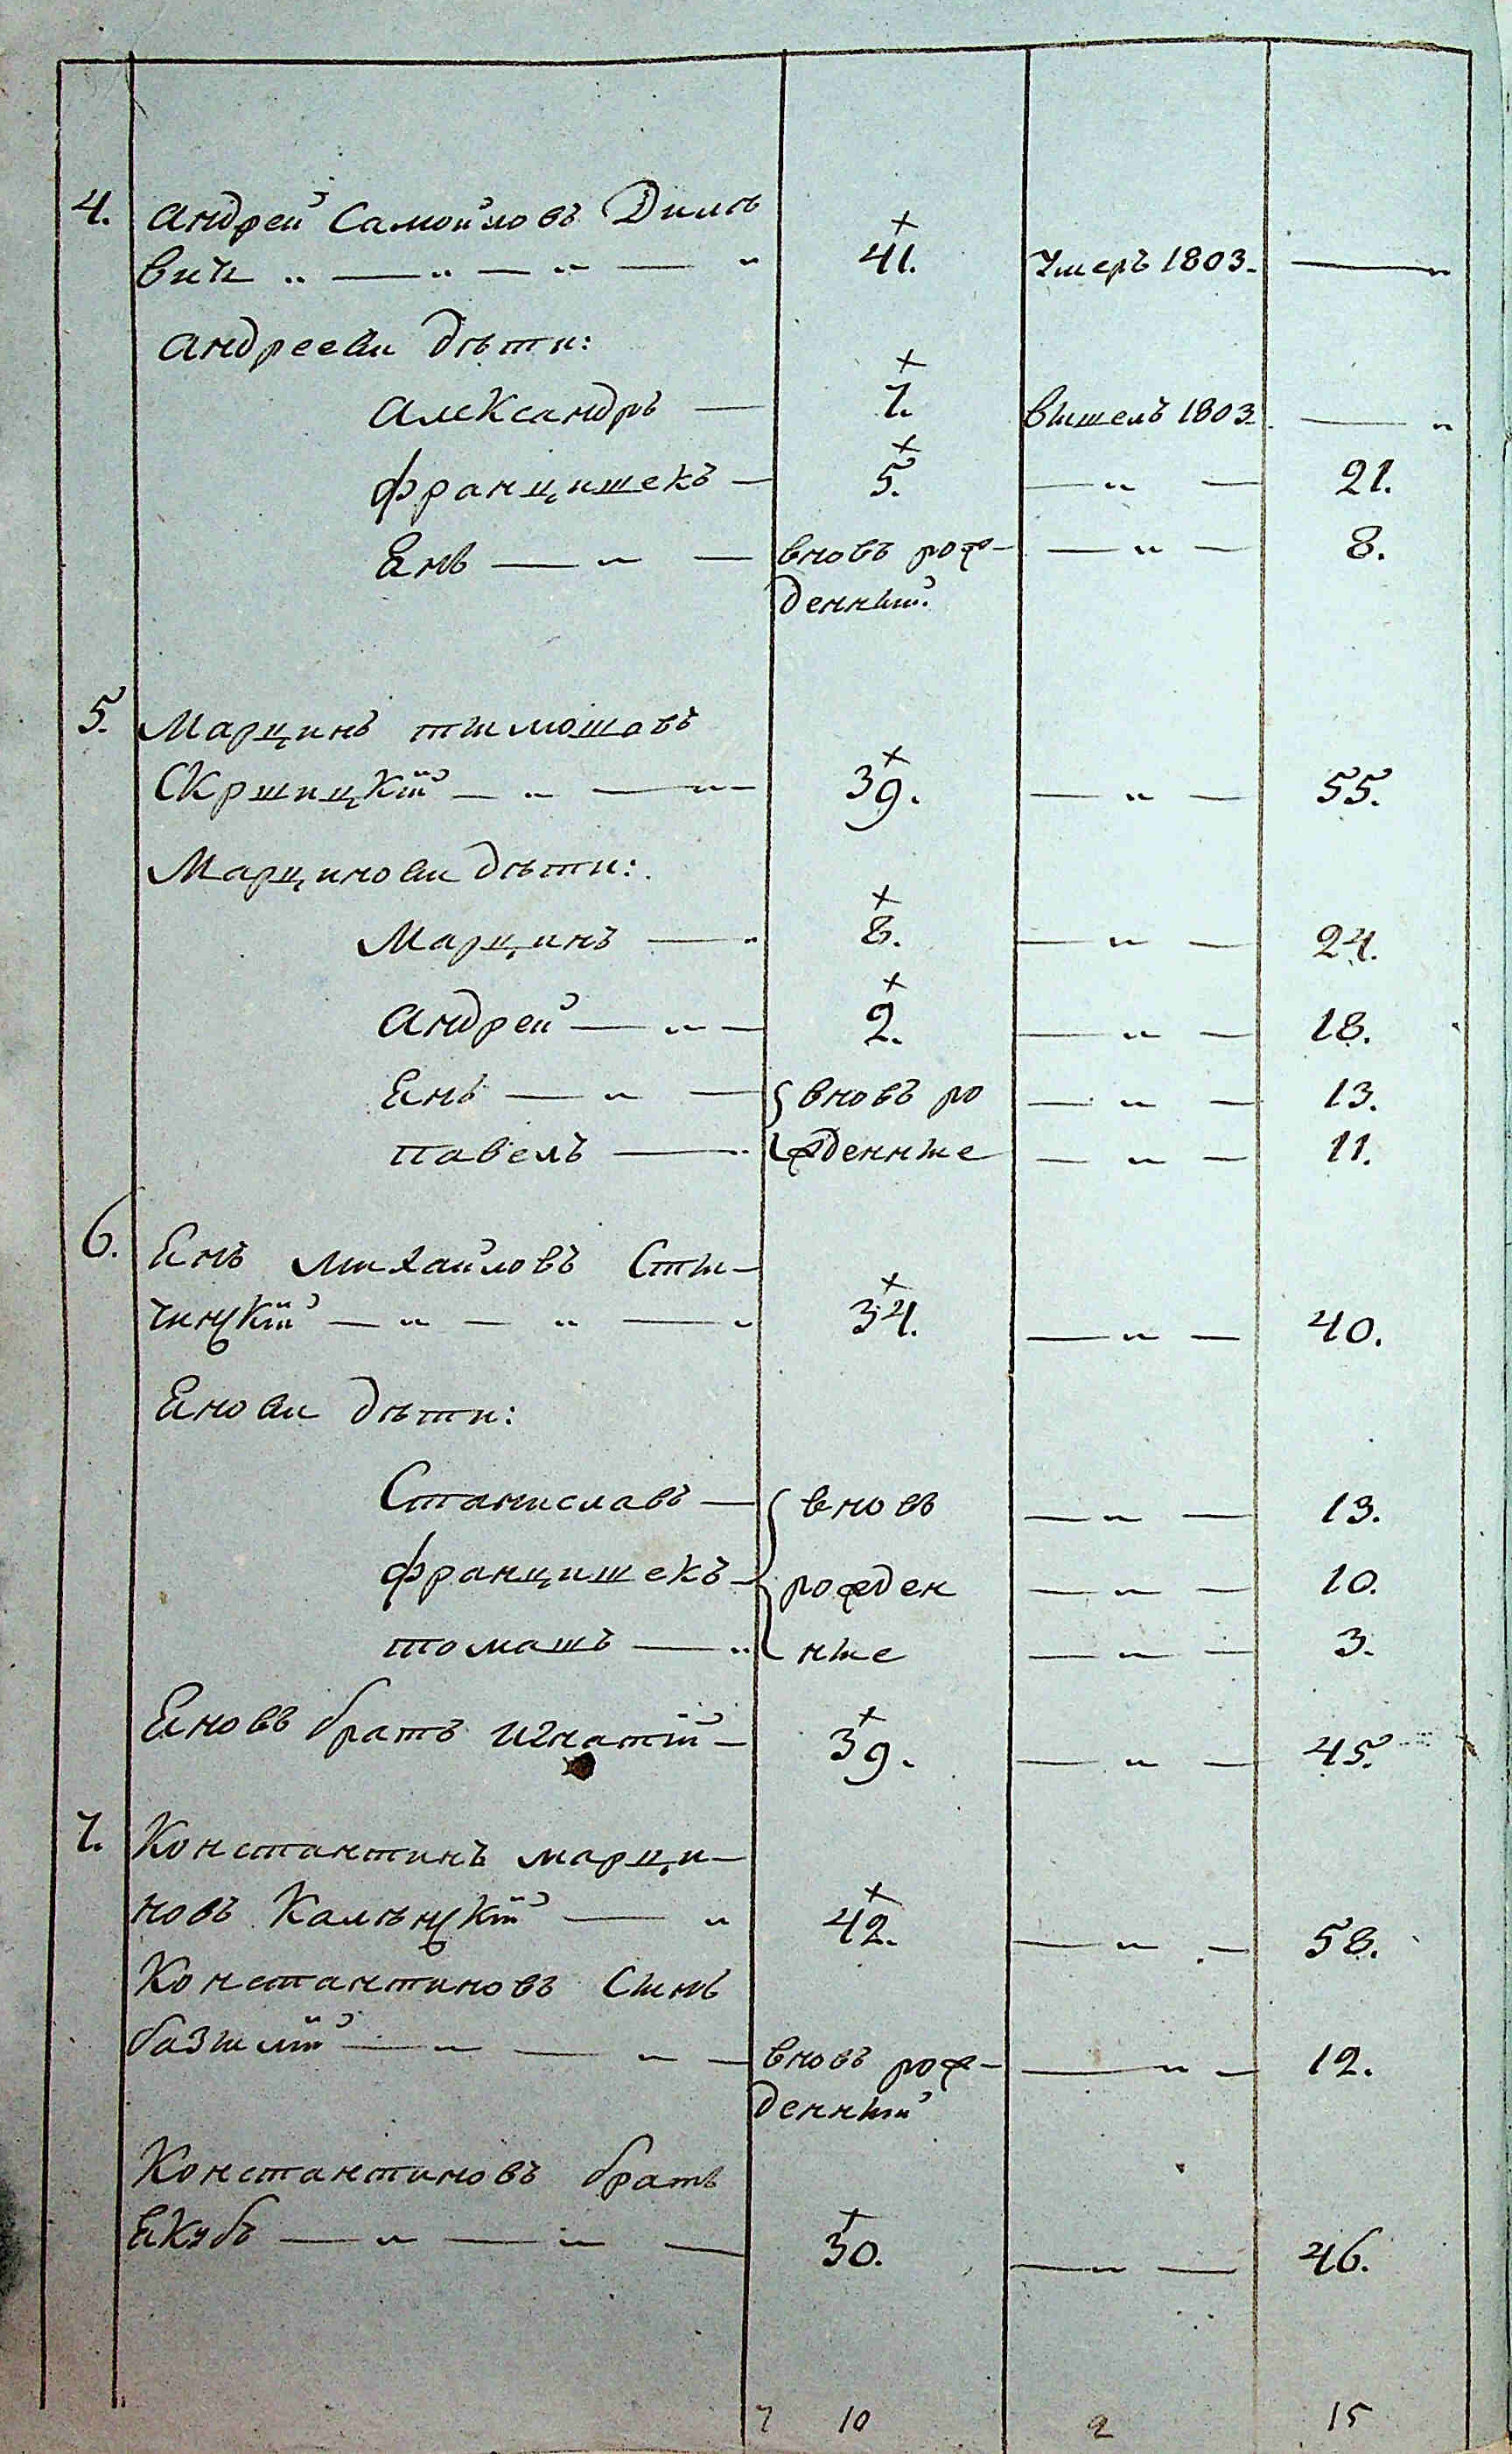 4. Андрей Самойловъ Дили
вичъ „ — „ — „ — „ 41. Умеръ 1803. — „
Андреевы дѣти:
Александръ — 7. вышелъ 1803. — „
Францишекъ — 5. — „ — 21.
Янъ — „ — вновь рож- — „ — 8.
денный.
5. Марцинъ Тымошовъ
Скршицкій — „ — „ — 39. — „ — 55.
Марциновы дѣти:
Марцинъ — „ 8. — „ — 24.
Андрей — „ — 2. — „ — 18.
Янъ — „ — вновь ро — „ — 13.
Павелъ — „ жденные — „ — 11.
6. Янъ Михайловъ Сты-
чинскій — „ — „ — „ 34. — „ — 40.
Яновы дѣти:
Станиславъ — вновь — „ — 13.
Францишекъ — рожден — „ — 10.
Томашъ — „ ные — „ — 3.
Яновъ братъ Игнатій — 39. — „ — 45.
7. Константинъ Марци-
новъ Калѣнскій — „ 42. — „ — 58.
Константиновъ сынъ
Базылій — „ — „ — вновь рож- — „ — 12.
денный
Константиновъ братъ
Якубъ — „ — „ — 30. — „ — 46.
7 10 2 15